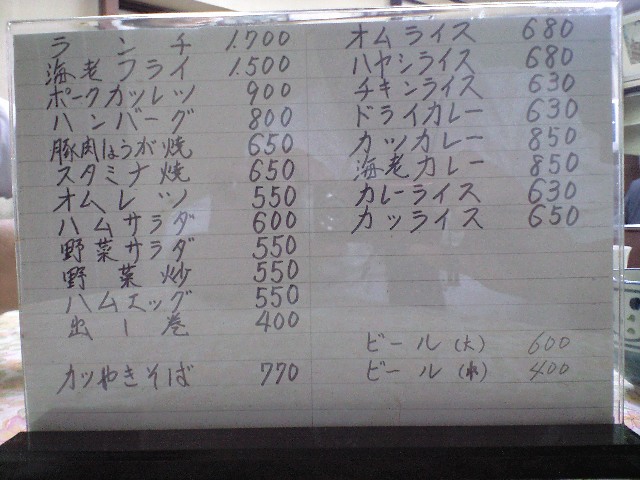 ランチ 1.700
海老フライ 1.500
ポークカツレツ 900
ハンバーグ 800
豚肉しょうが焼 650
スタミナ焼 650
オムレツ 550
ハムサラダ 600
野菜サラダ 550
野菜炒 550
ハムエッグ 550
出し巻 400
カツやきそば 770
オムライス 680
ハヤシライス 680
チキンライス 630
ドライカレー 630
カツカレー 850
海老カレー 850
カレーライス 630
カツライス 650
ビール(大) 600
ビール(小) 400